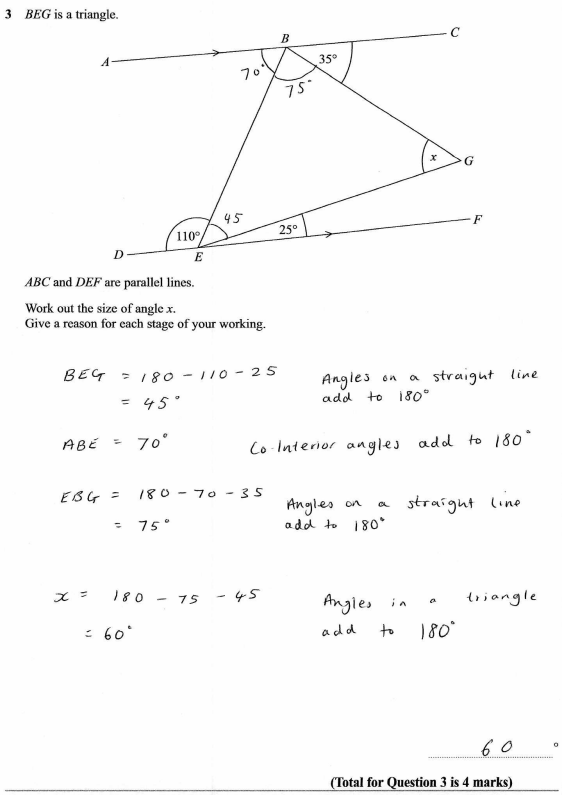 3 BEG is a triangle.
C
B
A
35°
70°
75°
x
G
45
F
110°
25°
D
E
ABC and DEF are parallel lines.
Work out the size of angle x.
Give a reason for each stage of your working.
BEG = 180 - 110 - 25 Angles on a straight line
= 45° add to 180°
ABE = 70° Co-Interior angles add to 180°
EBG = 180 - 70 - 35 Angles on a straight line
= 75° add to 180°
x = 180 - 75 - 45 Angles in a triangle
= 60° add to 180°
60 °
(Total for Question 3 is 4 marks)